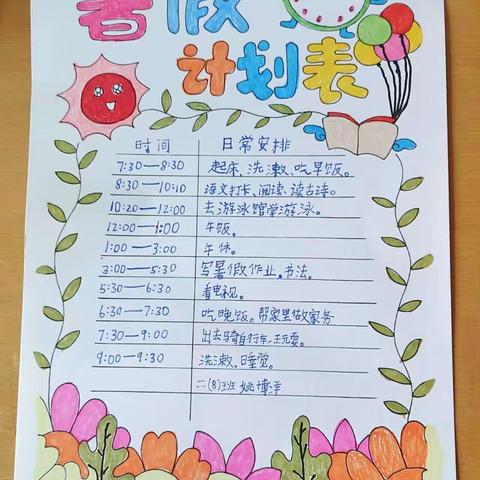 暑假
计划表
时间 日常安排
7:30—8:30 起床、洗漱、吃早饭。
8:30—10:10 语文打卡、阅读、读古诗。
10:20—12:00 去游泳馆学游泳。
12:00—1:00 午饭。
1:00—3:00 午休。
3:00—5:30 写暑假作业,书法。
5:30—6:30 看电视。
6:30—7:30 吃晚饭。帮家里做家务
7:30—9:00 出去骑自行车,玩耍。
9:00—9:30 洗漱、睡觉。
二(8)班 姚博洋